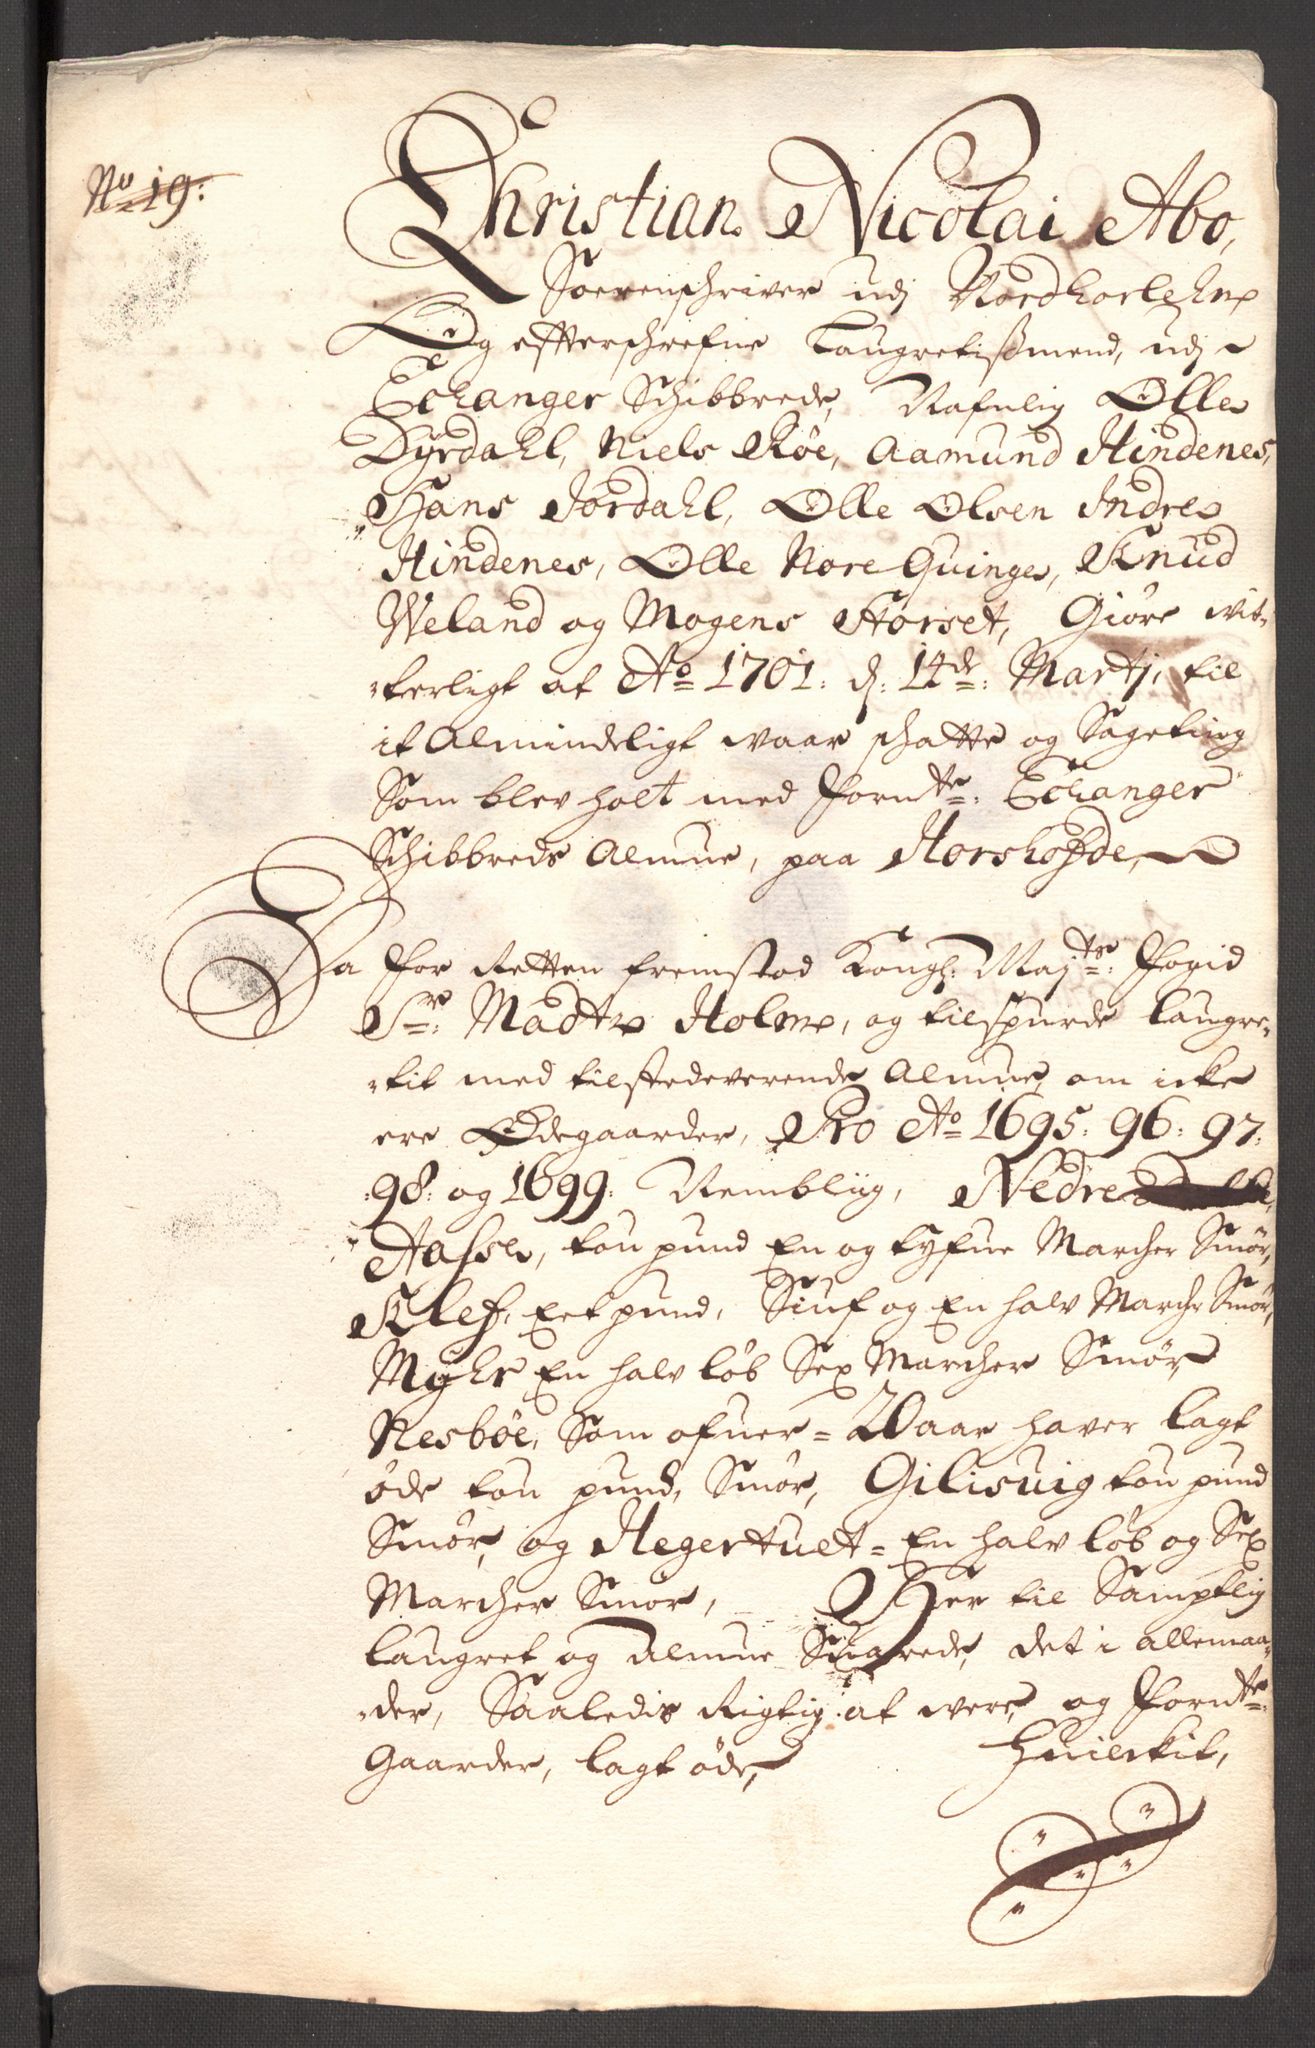 No 19:
Christian Nicolai Abo,
Soerenschriver udj Nordhorlehn
Og effterschrefne Laugretismend, udj
Echanger Schibbrede, Nafnlig Olle
Dyrdahl, Niels Röe, Aamund Hindenes,
Hans Jordahl, Olle Olsen Indre
Hindenes, Olle Nore Quinge, Knud
Weland og Mogens Storset, Giöre wit-
-terligt at Ao 1701: d: 14de: Martj, til
it Almindeligt waar schatte og Sageting
Som blev holt med forn:te: Echanger
Schibbreds Almue, paa Horshofde,
Da for Retten fremstod Kongl: Maj:ts: fogid
Sr: Madtz Holm, og tilspurde Laugre-
-tit med tilstedeverende Almue, om icke
ere Ödegaarder, Pro Ao 1695: 96: 97:
:98: og 1699: Nembliig, Nedre
Aasse, tou pund En og tyfue Marcher Smör,
Klef, Eet pund, Siuf og En halv March Smör,
Myhr En halv löb Sex Marcher Smör,
Nesböe, Som ofuer = 20 aar haver lagt
öde tou pund, Smör, Gilisuig tou pund
Smör, og Hegertuet = En halv löb og Sex
Marcher Smör, Her til Samptlig
Laugret og Almue Suarede, det i allemaa-
-der, Saaledis Rigtig at were, og forn:te:
Gaarder, lagt öde, Huilckit,